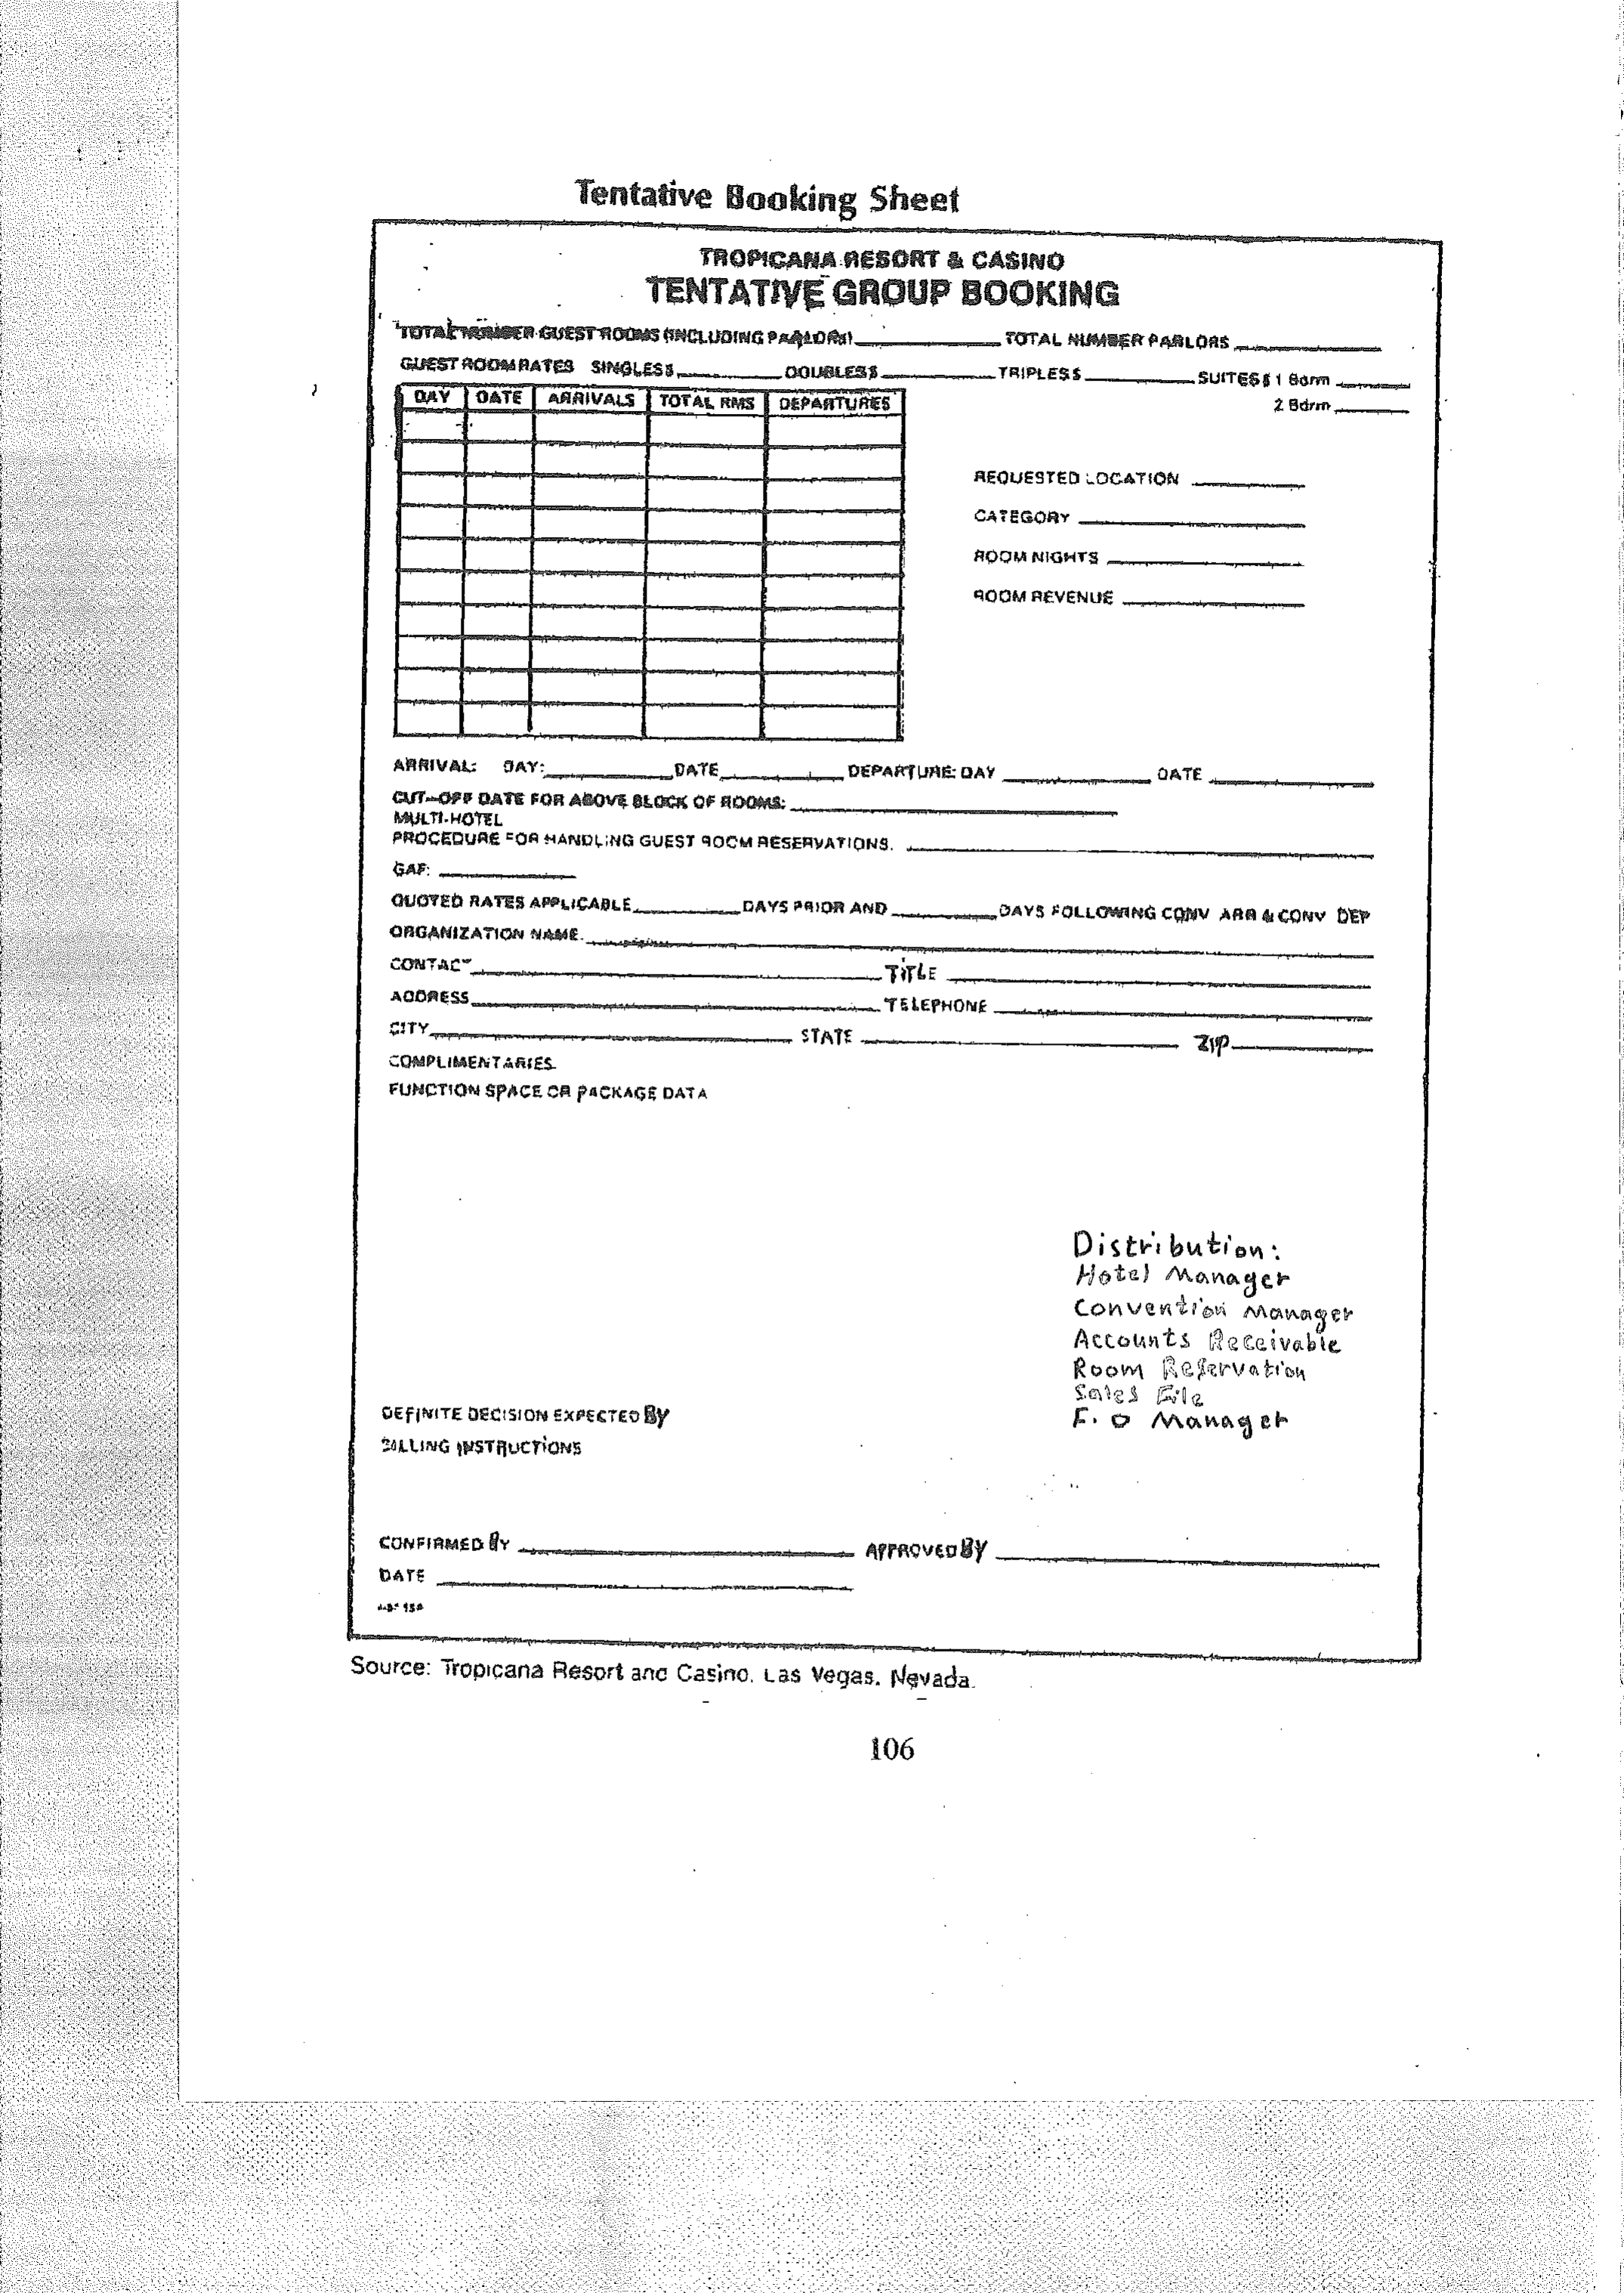 Tentative Booking Sheet
TROPICANA RESORT & CASINO
TENTATIVE GROUP BOOKING
TOTAL NUMBER GUEST ROOMS (INCLUDING PARLORS) TOTAL NUMBER PARLORS
GUEST ROOM RATES SINGLES $ DOUBLES $ TRIPLES $ SUITES $ 1 Bdrm
2 Bdrm
DAY DATE ARRIVALS TOTAL RMS DEPARTURES
REQUESTED LOCATION
CATEGORY
ROOM NIGHTS
ROOM REVENUE
ARRIVAL: DAY: DATE DEPARTURE: DAY DATE
CUT-OFF DATE FOR ABOVE BLOCK OF ROOMS:
MULTI-HOTEL
PROCEDURE FOR HANDLING GUEST ROOM RESERVATIONS.
QUOTED RATES APPLICABLE DAYS PRIOR AND DAYS FOLLOWING CONV ARR & CONV DEP
ORGANIZATION NAME.
CONTACT TITLE
ADDRESS TELEPHONE
CITY STATE ZIP
COMPLIMENTARIES
FUNCTION SPACE OR PACKAGE DATA
Distribution:
Hotel Manager
Convention Manager
Accounts Receivable
Room Reservation
Sales File
F. O Manager
DEFINITE DECISION EXPECTED BY
BILLING INSTRUCTIONS
CONFIRMED BY APPROVED BY
DATE
Source: Tropicana Resort and Casino, Las Vegas, Nevada.
106